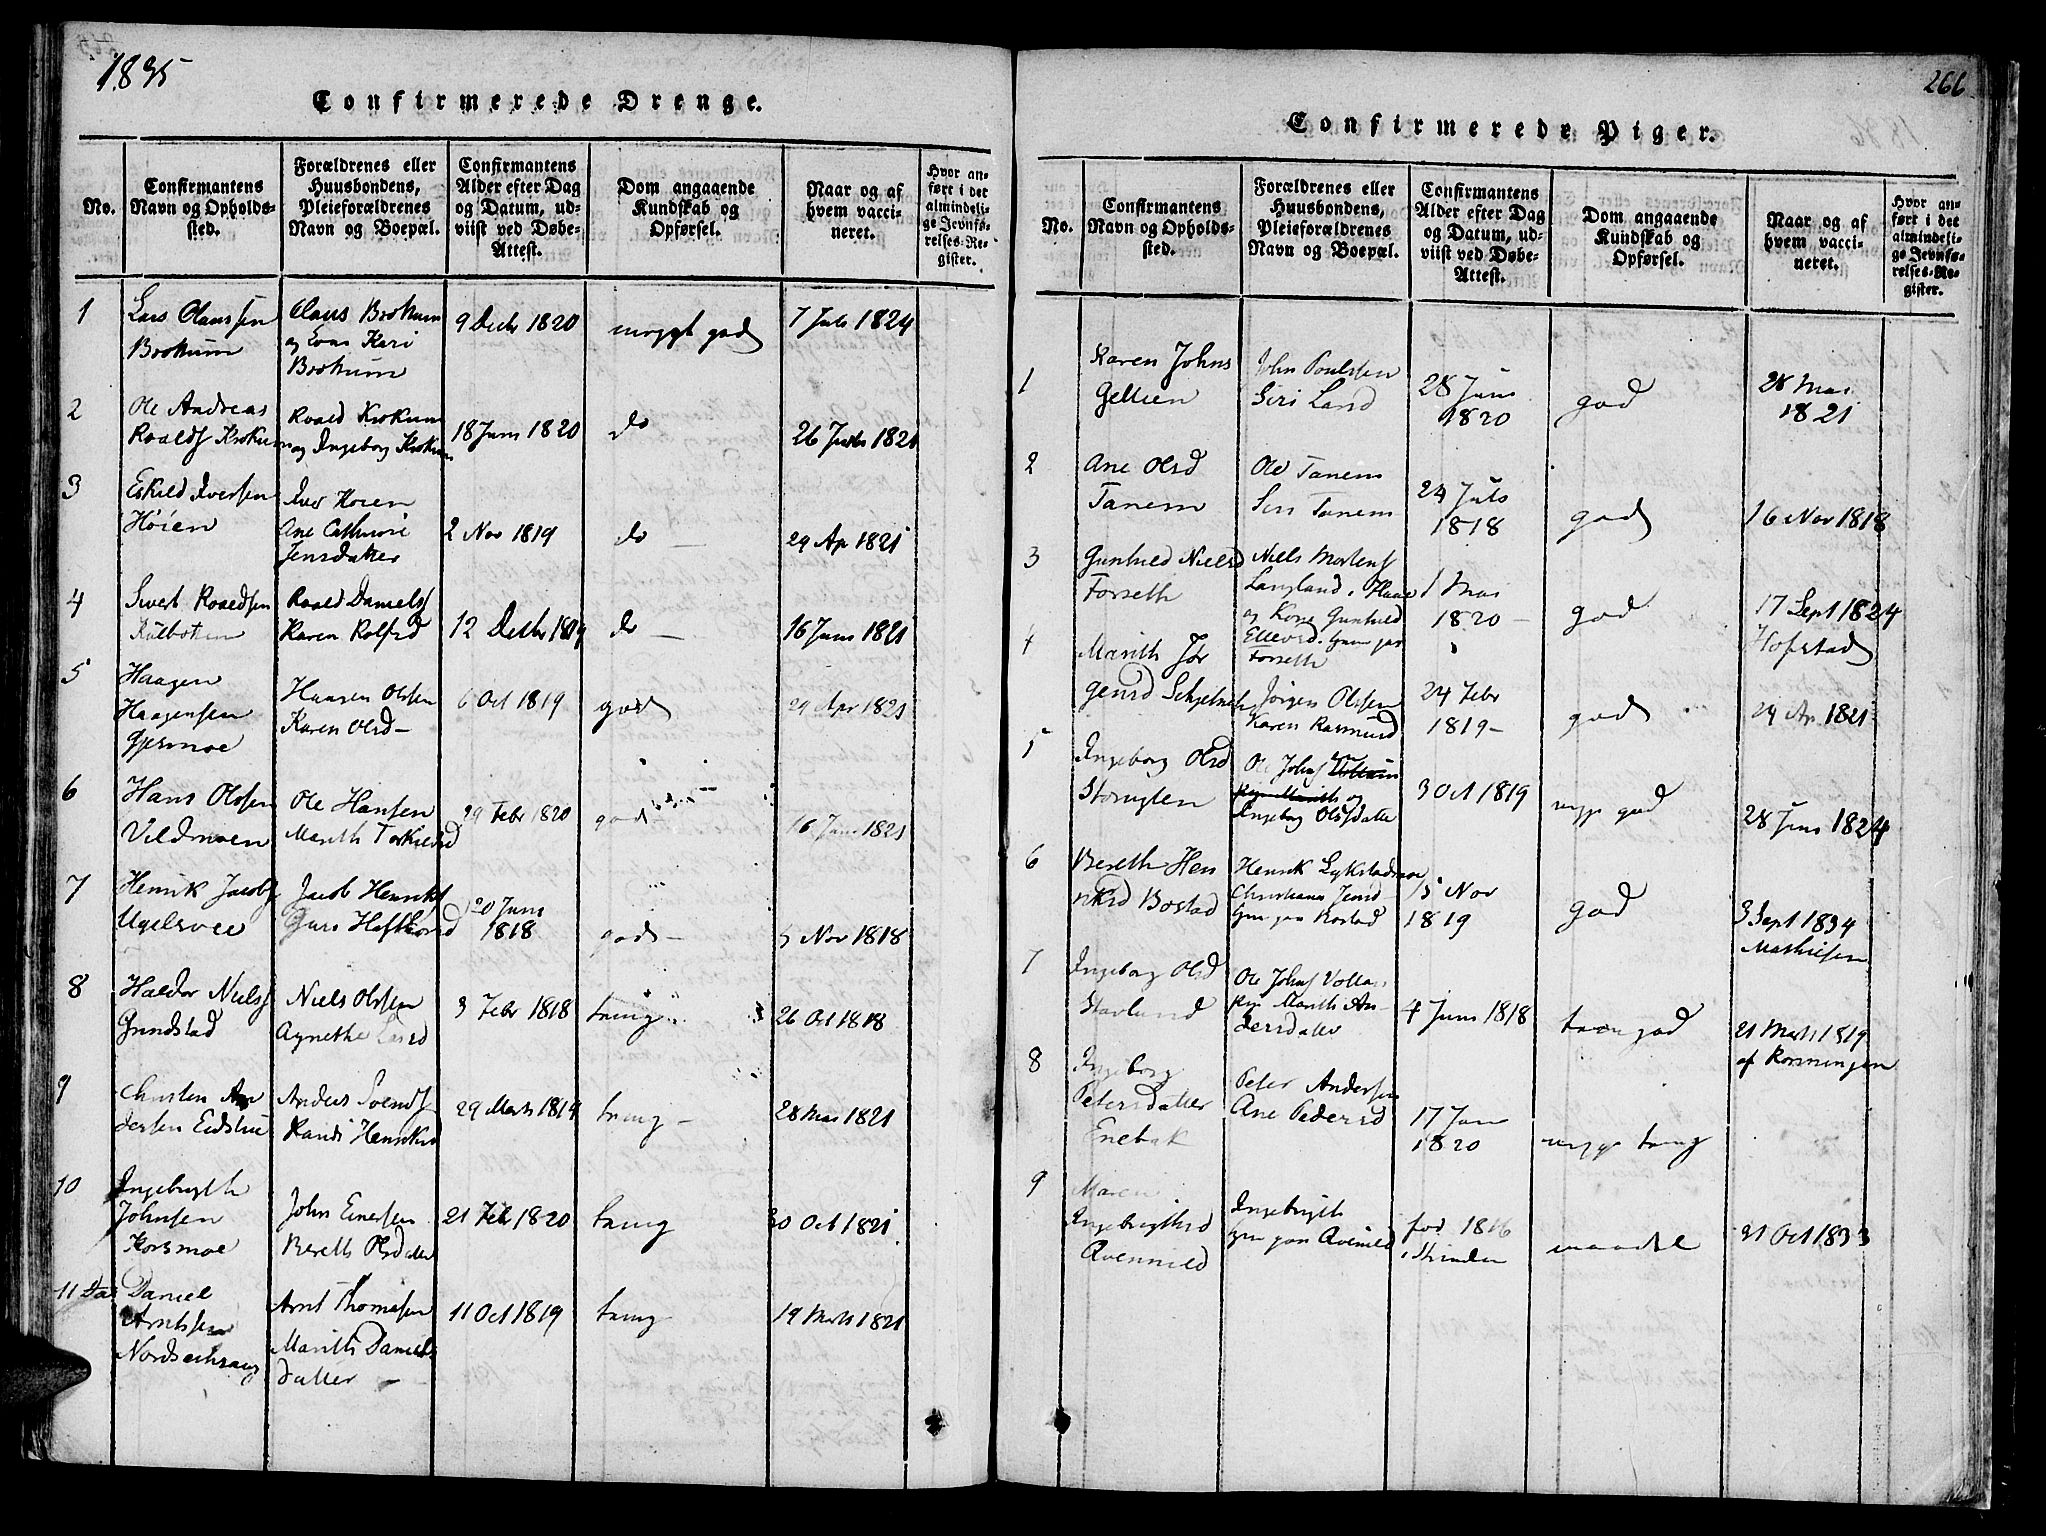 1835
Confirmerede Drenge.
No.
Confirmantens
Navn og Opholds-
sted.
Forældrenes eller
Huusbondens,
Pleieforældrenes
Navn og Boepæl.
Confirmantens
Alder efter Dag
og Datum, ud-
viist ved Døbe-
Attest.
Dom angaaende
Kundskab og
Opførsel.
Naar og af
hvem vacci-
neret.
Hvor an-
ført i det
almindeli-
ge Jevnfø-
relses-Re-
gister.
1
Lars Olaussen
Brokum
Olaus Brokum
og Kari
Brokum
9 Decbr 1820
god
7 Juli 1824
2
Ole Andreas
Roalds Krokum
Roald Krokum
og Ingeborg Krokum
18 Juni 1820
do
26 1821
3
Eskild Iversen
Höien
Iver
Ane Cathrine
Jensdatter
2 Nov 1819
do —
29 Ap 1821
4
Sivert Roaldsen
Roald Daniels
Karen Rolfsd
12 Decbr 1819
do —
16 Juni 1821
5
Haagen
Haagensen
Gjesmoe
Haagen Olssen
Karen Olsd —
6 Oct 1819
god
29 Apr 1821
6
Hans Olssen
Vildmoen
Ole Hansen
Marith Torkildsd
29 Febr 1820
god
16 Juni 1821
7
Henrik Jacobs
Ugelsvee
Jacob Henriks
Guru
20 Juni
1818
god —
5 Nov 1818
8
Haldor Niels
Grindstad
Niels Olssen
Agnethe Larsd
3 Febr 1818
tring
26 Oct 1818
9
Christen An
dersen Eidstue
Anders Svends
Randi Henriksd
29 Marts 1819
tring —
28 Mai 1821
10
Ingebrigth
Johnsen
Korsmoe
John Einersen
Bereth Olsdatter
21 Feb 1820
tring
30 Oct 1821
11
Daniel
Arntssen
Arnt Thomesen
Marith Daniels
datter —
11 Oct 1819
tring
19 Marts 1821
266
Confirmerede Piger.
No.
Confirmantens
Navn og Opholds-
sted.
Forældrenes eller
Huusbondens,
Pleieforældrenes
Navn og Boepæl.
Confirmantens
Alder efter Dag
og Datum, ud-
viist ved Døbe-
Attest.
Dom angaaende
Kundskab og
Opførsel.
Naar og af
hvem vacci-
neret.
Hvor an-
ført i det
almindeli-
ge Jevnfø-
relses-Re-
gister.
1
Karen Johns
Gellien
John Poulssen
Siri Land
28 Juni
1820
god
28 Mai
1821
2
Ane Olsd
Tanem
Ole Tanem
Siri Tanem
24 Juli
1818
god
16 Nov 1818
3
Gunhild Nielsd
Forseth
Niels Mortens
Langland i
og Kone Gunhild
Ellevsd
Forseth
1 Mai
1820 —
god
17 Sept 1824
Hofstad
4
Marith Jør
gensd
Jörgen Olssen
Karen Rasmusd
24 Febr
1819 —
god
29 Ap 1821
5
Ingeborg Olsd
Storugten
Ole Johns
og
Ingeborg Olsdatter
3 Oct 1819
god
28 Juni 1824
6
Bereth Hen
riksd Bostad
Henrik
Christiana Jensd
5 Nov
1819
god
3 Sept 1834
Mathiesen
7
Ingeborg Olsd
Storlund
Ole Johns
Marith An-
dersdatter
4 Juni 1818
god
21 Marts 1819
af
8
Ingeborg
Petersdatter
Enebak
Peter Andersen
Ane Pedersd
17 Jan
1820
tring
9
Maren
Ingebrigthsd
Qvenild
Ingebrigth
Qvenild
fød 1816
i Strinden
maadel
21 Oct 1833